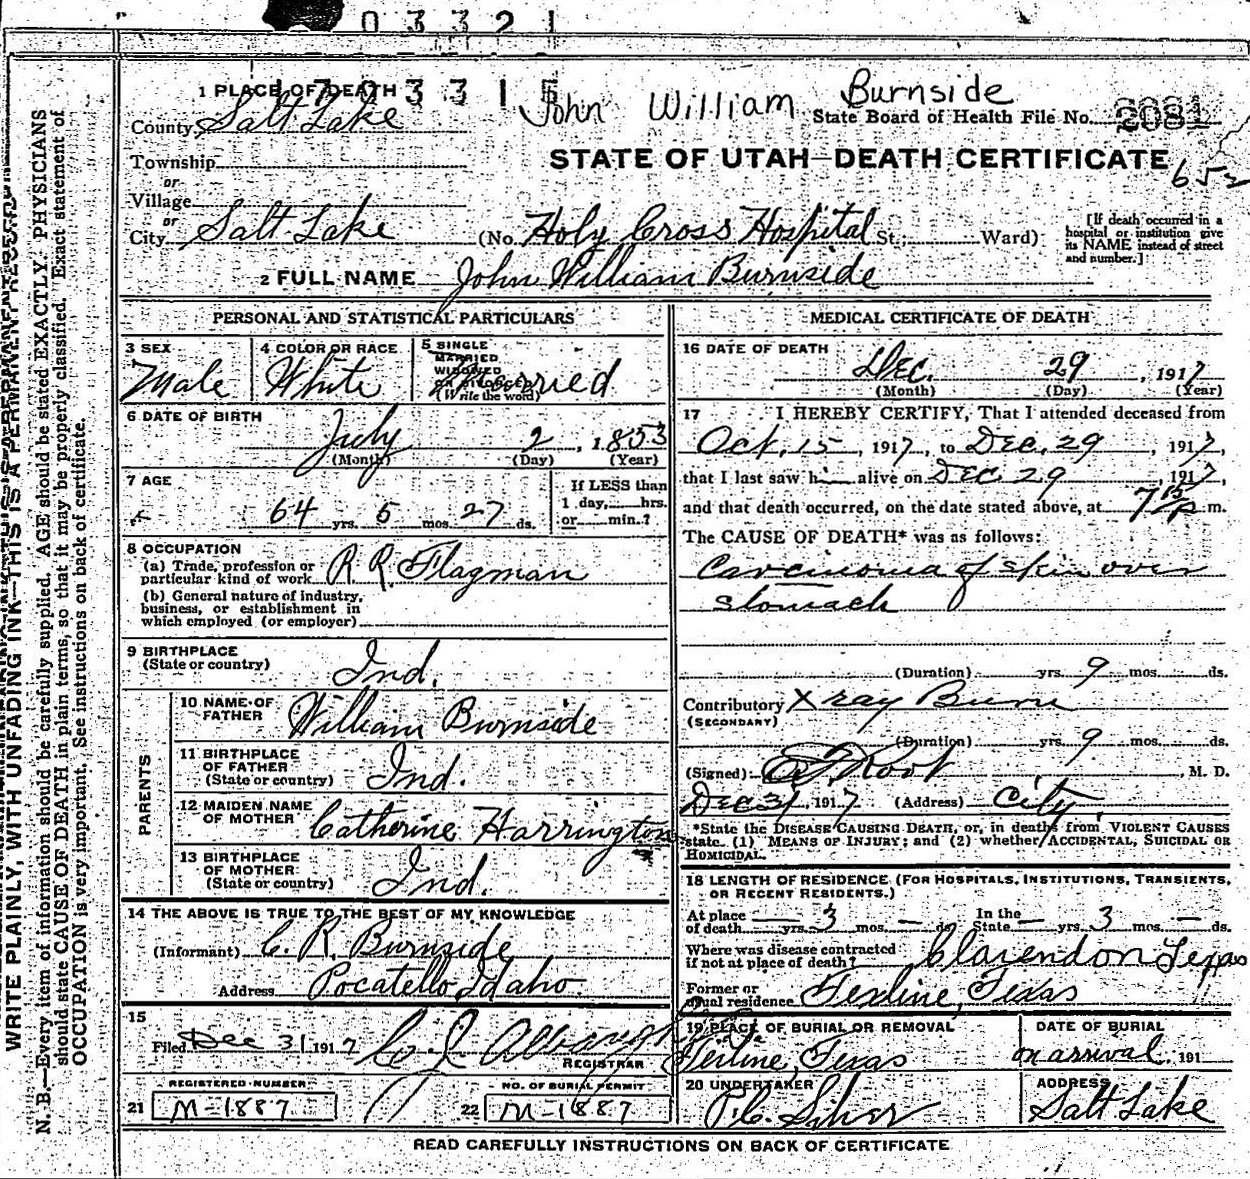 03321
1 PLACE OF DEATH 1703315
John William Burnside
County Salt Lake
State Board of Health File No. 2081
STATE OF UTAH—DEATH CERTIFICATE
652
Township
or
Village
or
City Salt Lake (No. Holy Cross Hospital St.; Ward)
[If death occurred in a hospital or institution give its NAME instead of street and number.]
2 FULL NAME John William Burnside
PERSONAL AND STATISTICAL PARTICULARS
3 SEX Male
4 COLOR OR RACE White
5 SINGLE MARRIED WIDOWED OR DIVORCED (Write the word) Married
6 DATE OF BIRTH July 2, 1853
(Month) (Day) (Year)
7 AGE 64 yrs. 5 mos. 27 ds.
If LESS than 1 day, hrs. or min.?
8 OCCUPATION
(a) Trade, profession or particular kind of work R. R. Flagman
(b) General nature of industry, business, or establishment in which employed (or employer)
9 BIRTHPLACE (State or country) Ind.
PARENTS
10 NAME OF FATHER William Burnside
11 BIRTHPLACE OF FATHER (State or country) Ind.
12 MAIDEN NAME OF MOTHER Catherine Harrington
13 BIRTHPLACE OF MOTHER (State or country) Ind.
14 THE ABOVE IS TRUE TO THE BEST OF MY KNOWLEDGE
(Informant) C. R. Burnside
Address Pocatello, Idaho.
15
Filed Dec 31 1917
REGISTRAR
REGISTERED NUMBER
21 M-1887
NO. OF BURIAL PERMIT
22 M-1887
MEDICAL CERTIFICATE OF DEATH
16 DATE OF DEATH Dec. 29, 1917
(Month) (Day) (Year)
17 I HEREBY CERTIFY, That I attended deceased from
Oct. 15, 1917, to Dec. 29, 1917,
that I last saw h alive on Dec 29, 1917,
and that death occurred, on the date stated above, at 7 p m.
The CAUSE OF DEATH* was as follows:
Carcinoma of skin over
stomach
(Duration) yrs. 9 mos. ds.
Contributory Xray Burn
(SECONDARY)
(Duration) yrs. 9 mos. ds.
(Signed) Root, M. D.
Dec 31, 1917 (Address) City.
*State the DISEASE CAUSING DEATH, or, in deaths from VIOLENT CAUSES
state (1) MEANS OF INJURY; and (2) whether ACCIDENTAL, SUICIDAL OR
HOMICIDAL.
18 LENGTH OF RESIDENCE (FOR HOSPITALS, INSTITUTIONS, TRANSIENTS,
OR RECENT RESIDENTS.)
At place of death — yrs. 3 mos. — ds. In the State — yrs. 3 mos. — ds.
Where was disease contracted if not at place of death? Clarendon Texas
Former or usual residence Texline, Texas
19 PLACE OF BURIAL OR REMOVAL Texline, Texas
DATE OF BURIAL on arrival 191
20 UNDERTAKER
ADDRESS Salt Lake
READ CAREFULLY INSTRUCTIONS ON BACK OF CERTIFICATE
WRITE PLAINLY, WITH UNFADING INK—THIS IS A PERMANENT RECORD
N. B.—Every item of information should be carefully supplied. AGE should be stated EXACTLY. PHYSICIANS
should state CAUSE OF DEATH in plain terms, so that it may be properly classified. Exact statement of
OCCUPATION is very important. See instructions on back of certificate.